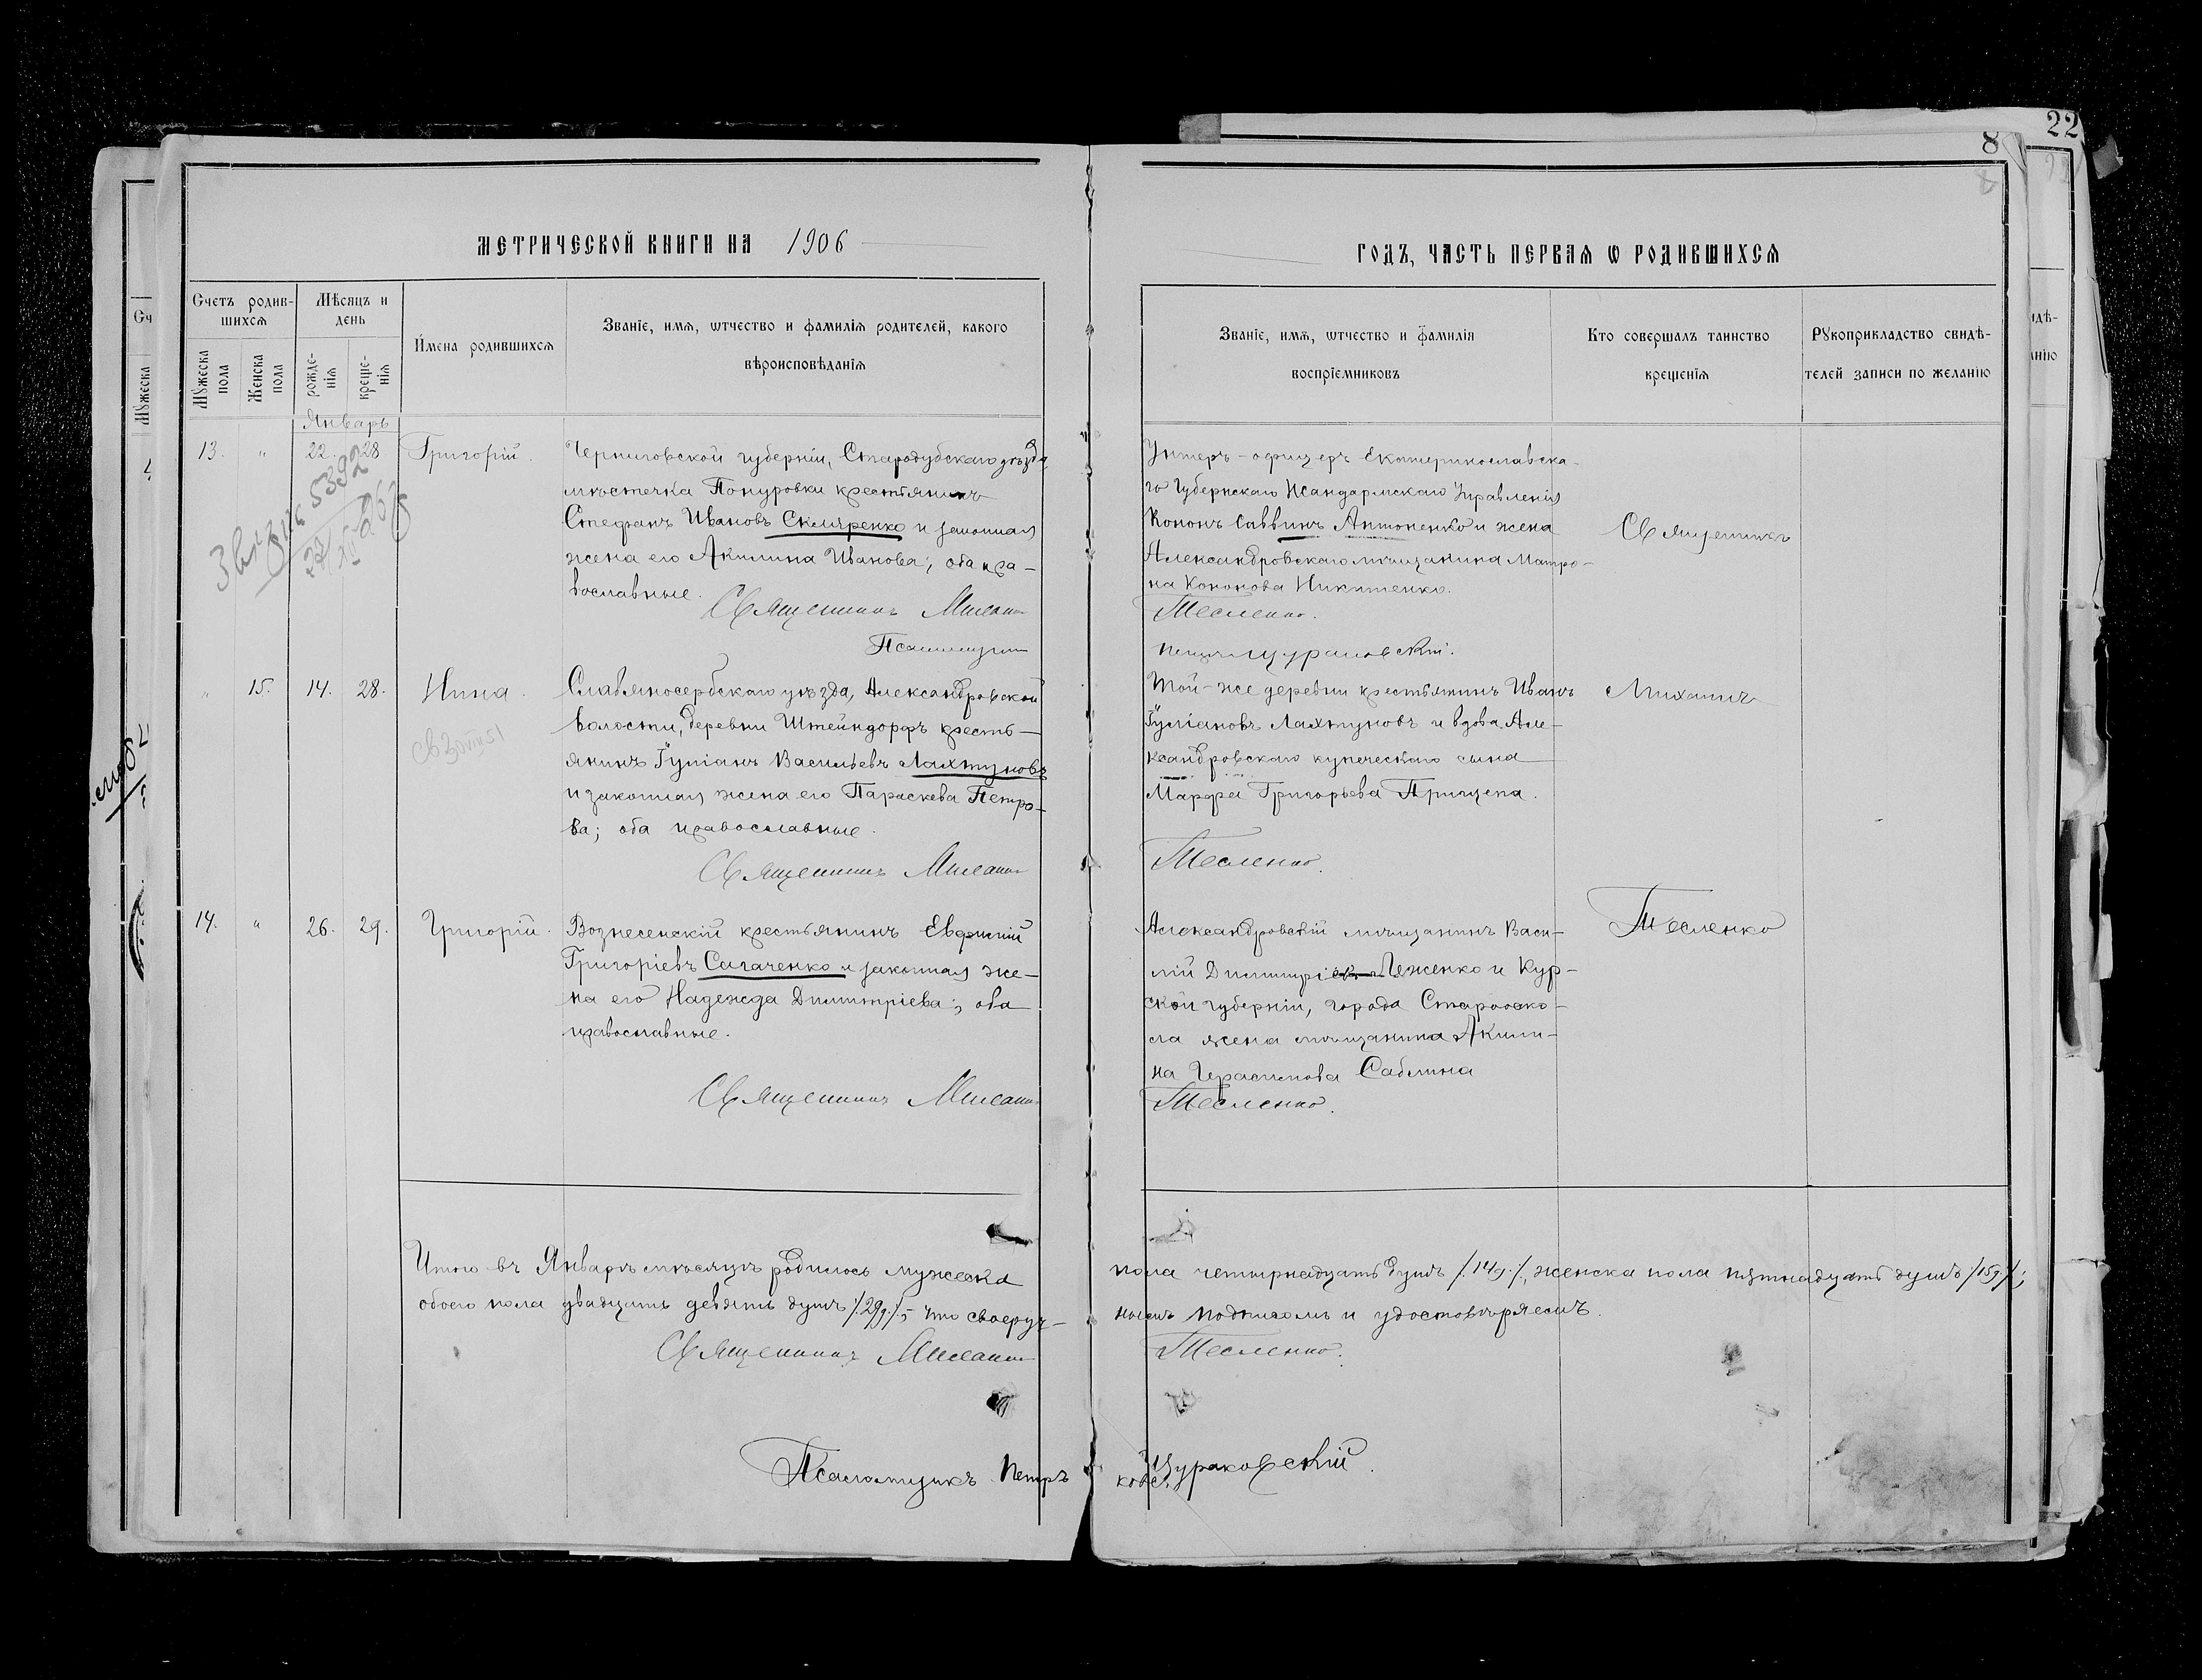 22
8
МЕТРИЧЕСКОЙ КНИГИ НА 1906
ГОДЪ, ЧАСТЬ ПЕРВАѦ Ѡ РОДИВШИХСѦ
Счетъ родив-
шихсѧ
Мѣсяцъ и
день
Мꙋжеска
пола
Женска
пола
рожде-
нїѧ
креще-
нїѧ
Имена родившихсѧ
Званїе, имѧ, ѡтчество и фамилїѧ родителей, какого
вѣроисповѣданїѧ
Званїе, имѧ, ѡтчество и фамилїѧ
воспрїемниковъ
Кто совершалъ таинство
крещенїѧ
Рꙋкоприкладство свидѣ-
телей записи по желанїю
Январь
13. " 22. 28 Григорій.
Черниговской губерніи, Стародубскаго уѣзда
мѣстечка Понуровки крестьянинъ
Стефанъ Ивановъ Скляренко и законная
жена его Акилина Иванова; оба пра-
вославные.
Священникъ Михаилъ
Псаломщикъ
5392
Унтеръ-офицеръ Екатеринославска-
го Губернскаго Жандармскаго Управленія
Кононъ Саввинъ Антоненко и жена
Александровскаго мѣщанина Матро-
на Кононова Никитенко.
Тесленко.
Цураковскій.
Священникъ
" 15. 14. 28. Нина.
Славяносербскаго уѣзда, Александровской
волости, деревни Штейндорфъ кресть-
янинъ Іуліанъ Васильевъ Лахтуновъ
и законная жена его Параскева Петро-
ва; оба православные.
Священникъ Михаилъ
Той-же деревни крестьянинъ Иванъ
Іуліановъ Лахтуновъ и вдова Але-
ксандровскаго купеческаго сына
Марфа Григорьева Прищепа.
Тесленко.
Михаилъ
14. " 26. 29. Григорій.
Вознесенскій крестьянинъ Евфимій
Григоріевъ Сагаченко и законная же-
на его Надежда Димитріева; оба
православные.
Священникъ Михаилъ
Александровскій мѣщанинъ Васи-
лій Димитріевъ Леженко и Кур-
ской губерніи, города Староско-
ла жена мѣщанина Акили-
на Герасимова Саблина
Тесленко.
Тесленко
Итого въ Январѣ мѣсяцѣ родилось мужеска
пола четырнадцать душъ /.14д./, женска пола пятнадцать душъ /15д/;
обоего пола двадцать девять душъ /.29д/; что своеруч-
нымъ подписомъ и удостовѣряемъ.
Священникъ Михаилъ
Тесленко.
Псаломщикъ Петръ
Цураковскій.